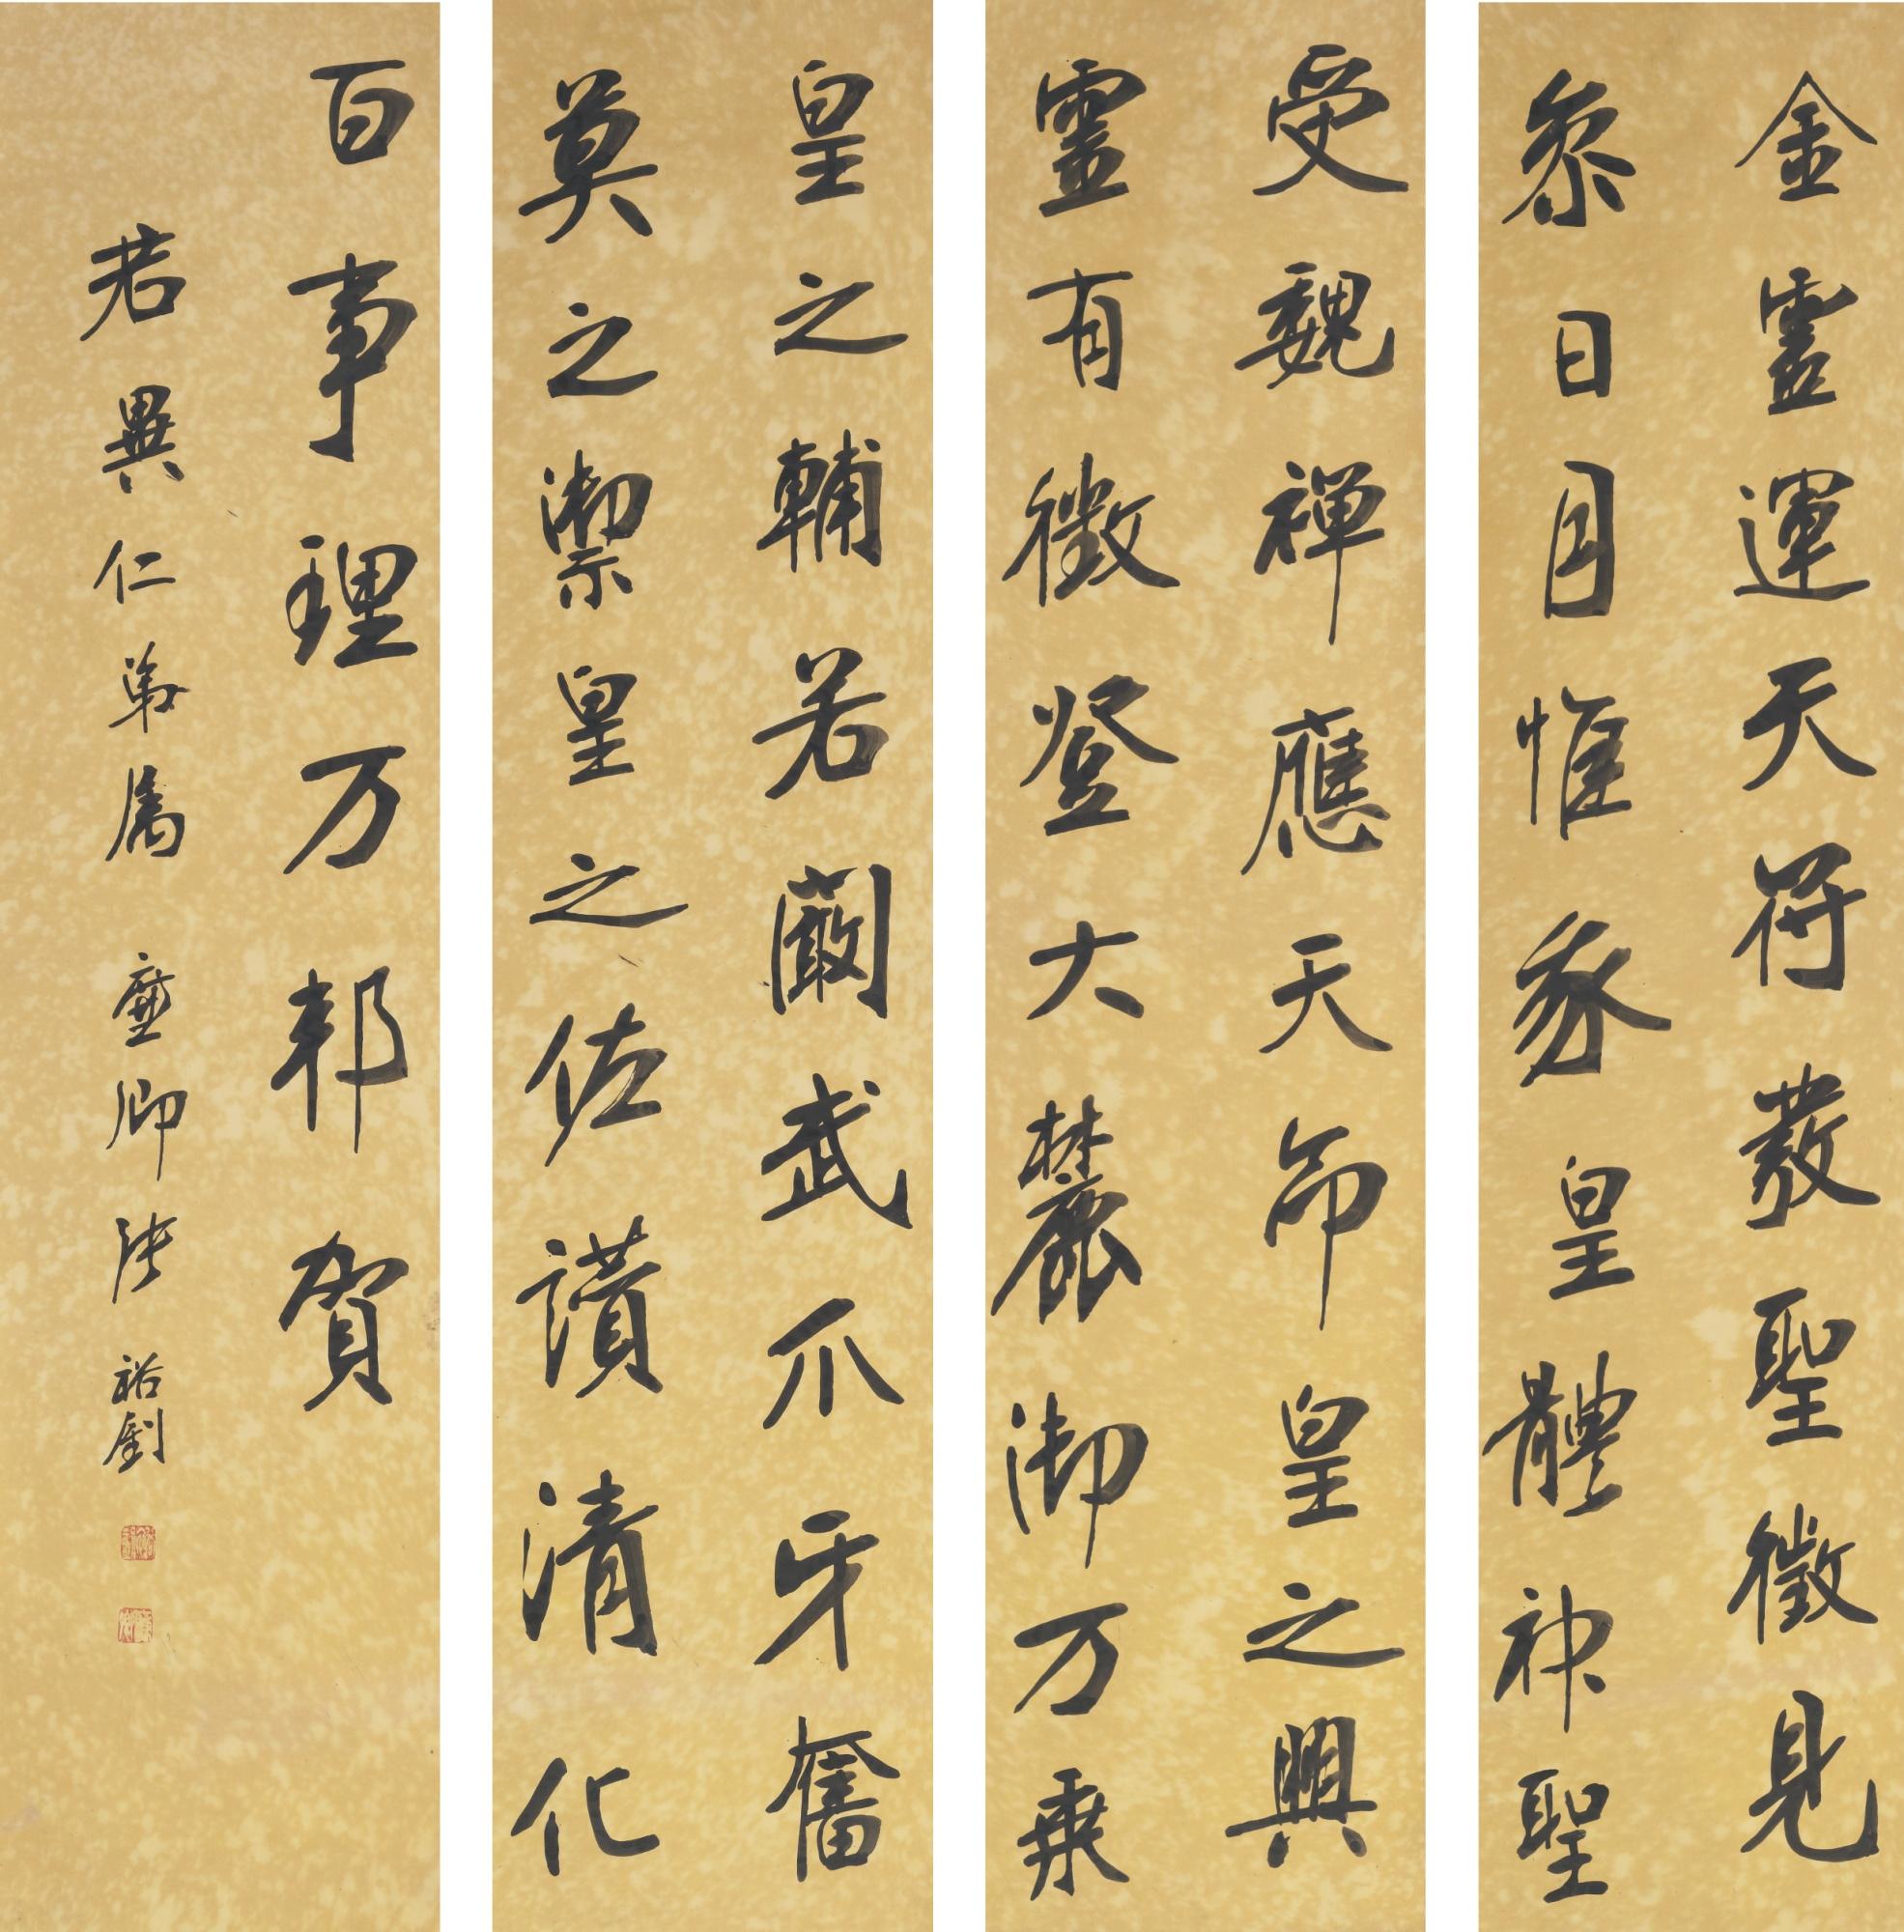 金靈運天符發聖徵見
叅日月惟我皇體神聖
受魏禪應天命皇之興
靈有徵登大麓御万乘
皇之輔若闞武爪牙奮
莫之禦皇之佐讃清化
百事理万邦賀
若異仁弟屬 廉卿張裕釗